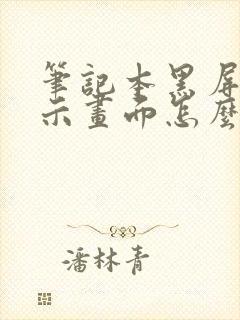 筆記本黑屏
示畫面怎麼
潘林青